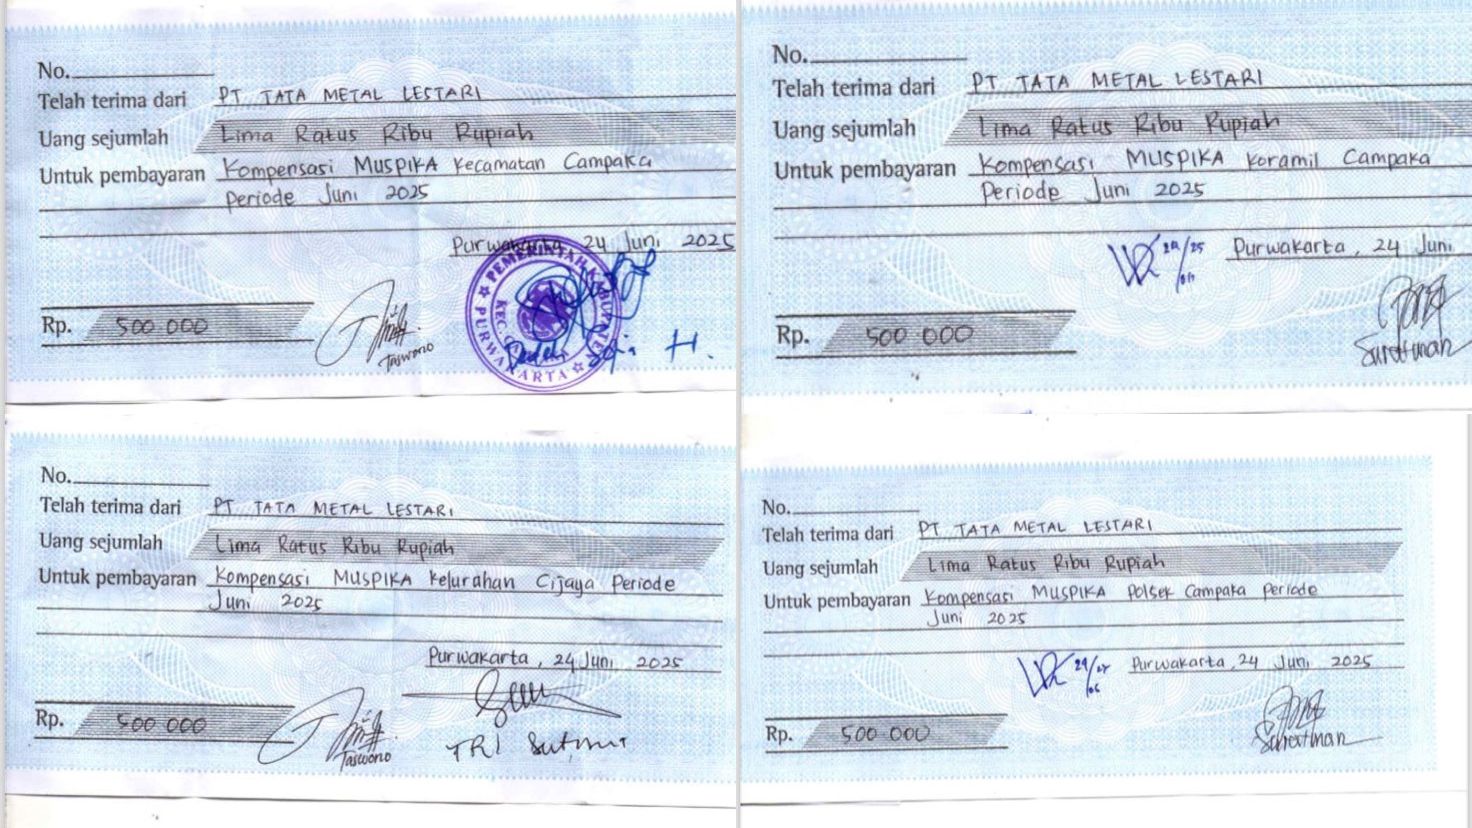 No.
Telah terima dari PT TATA METAL LESTARI
Uang sejumlah Lima Ratus Ribu Rupiah
Untuk pembayaran Kompensasi MUSPIKA Kecamatan Campaka
Periode Juni 2025
Purwakarta 24 Juni 2025
PEMERINTAH KABUPATEN
PURWAKARTA
Rp. 500 000
Taswono
No.
Telah terima dari PT TATA METAL LESTARI
Uang sejumlah Lima Ratus Ribu Rupiah
Untuk pembayaran Kompensasi MUSPIKA Koramil Campaka
Periode Juni 2025
Purwakarta, 24 Juni
Rp. 500 000
No.
Telah terima dari PT TATA METAL LESTARI
Uang sejumlah Lima Ratus Ribu Rupiah
Untuk pembayaran Kompensasi MUSPIKA Kelurahan Cijaya Periode
Juni 2025
Purwakarta, 24 Juni 2025
Rp. 500 000
Taswono
TRI
No.
Telah terima dari PT TATA METAL LESTARI
Uang sejumlah Lima Ratus Ribu Rupiah
Untuk pembayaran Kompensasi MUSPIKA Polsek Campaka Periode
Juni 2025
Purwakarta, 24 Juni 2025
Rp. 500 000